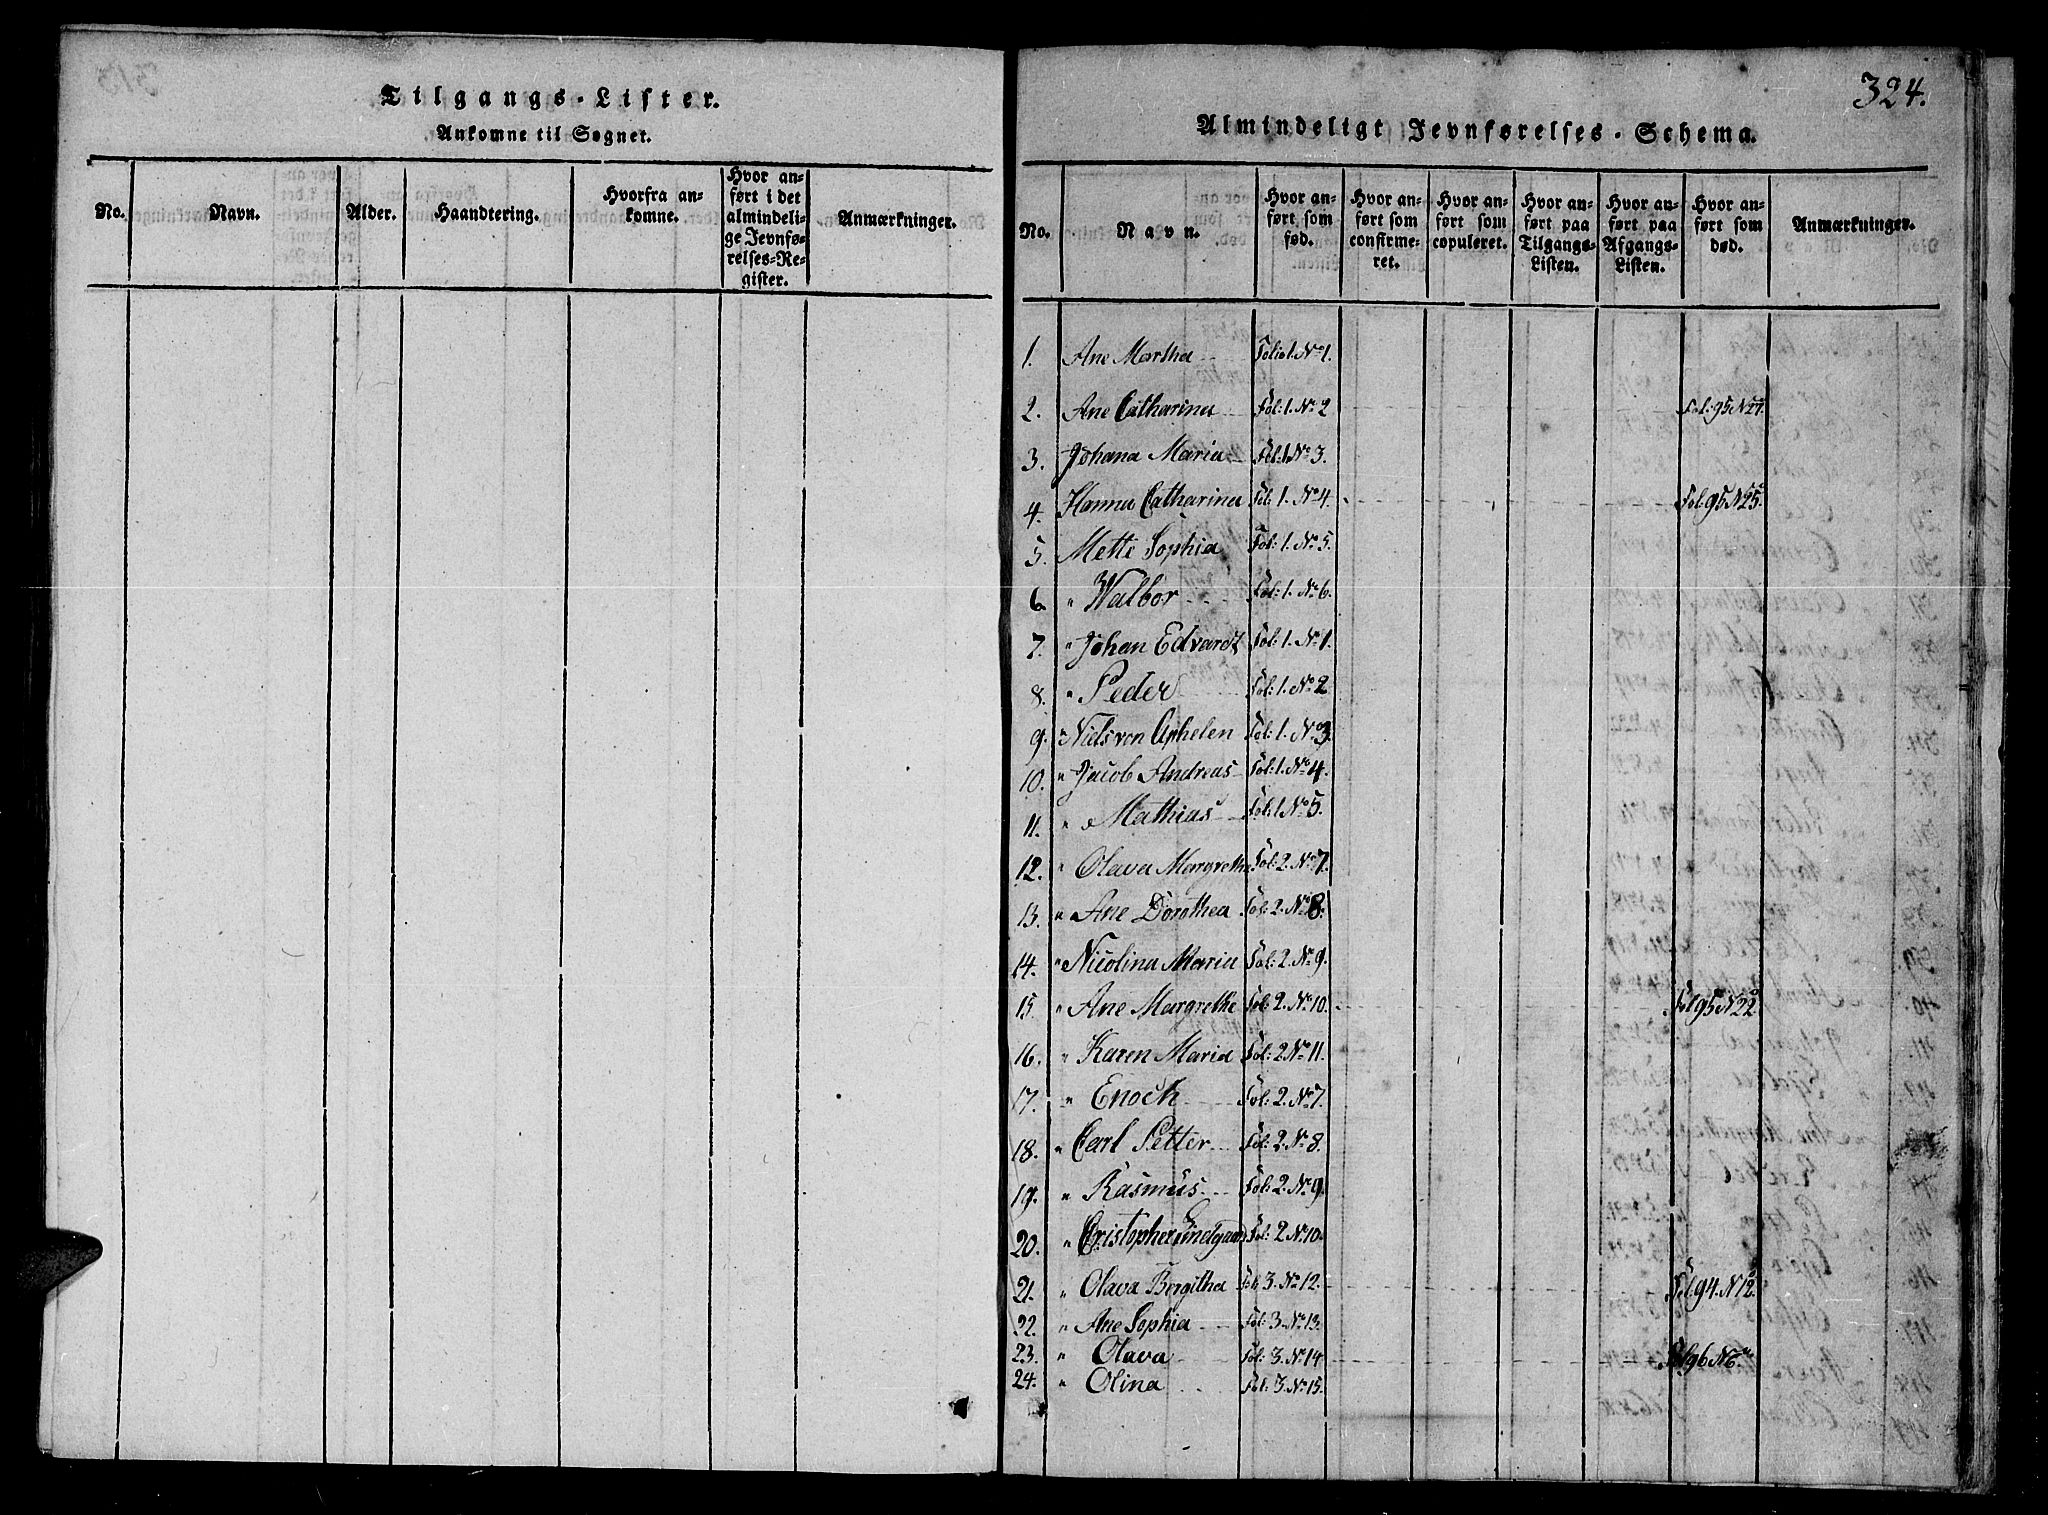 Tilgangs-Lister.
Ankomne til Sognet.
No. Navn. Alder. Haandtering. Hvorfra ankomne. Hvor anført i det almindelige Jevnførelses-Register. Anmærkninger.
324.
Almindeligt Jevnførelses-Schema.
No. Navn. Hvor anført som fød. Hvor anført som confirmeret. Hvor anført som copuleret. Hvor anført paa Tilgangs-Listen. Hvor anført paa Afgangs-Listen. Hvor anført som død. Anmærkninger.
1. Ane Martha Folio 1. No 1.
2. Ane Catharina Fol: 1. No 2 Fol: 95 No 27.
3. Johana Maria Fol: 1. No 3.
4. Hanna Catharina Fol: 1. No 4. Fol 95 No 25.
5. Mette Sophia Fol: 1. No 5.
6. " Walbor Fol: 1. No 6.
7. " Johan Edvardt Fol: 1. No 1.
8. " Peder Fol: 1. No 2
9. " Niels von Aphelen Fol: 1. No 3.
10. " Jacob Andreas Fol: 1. No 4.
11. " Mathias Fol: 1 No 5.
12. " Olava Margrethe Fol: 2. No 7.
13. " Ane Dorothea Fol: 2. No 8.
14. " Nicolina Maria Fol: 2. No 9.
15. " Ane Margrethe Fol: 2. No 10. Fol 95 No 22
16. " Karen Maria Fol: 2. No 11.
17. " Enoch Fol: 2. No 7.
18. " Carl Petter Fol: 2. No 8.
19. " Rasmus Fol: 2. No 9.
20. " Cristopher Fol: 2 No 10.
21. " Olava Bergitha Fol: 3. No 12. Fol 94. No 12.
22. " Ane Sophia Fol: 3. No 13.
23. " Olava Fol: 3. No 14 Fol 96 No 6.
24. " Olina Fol: 3. No 15.